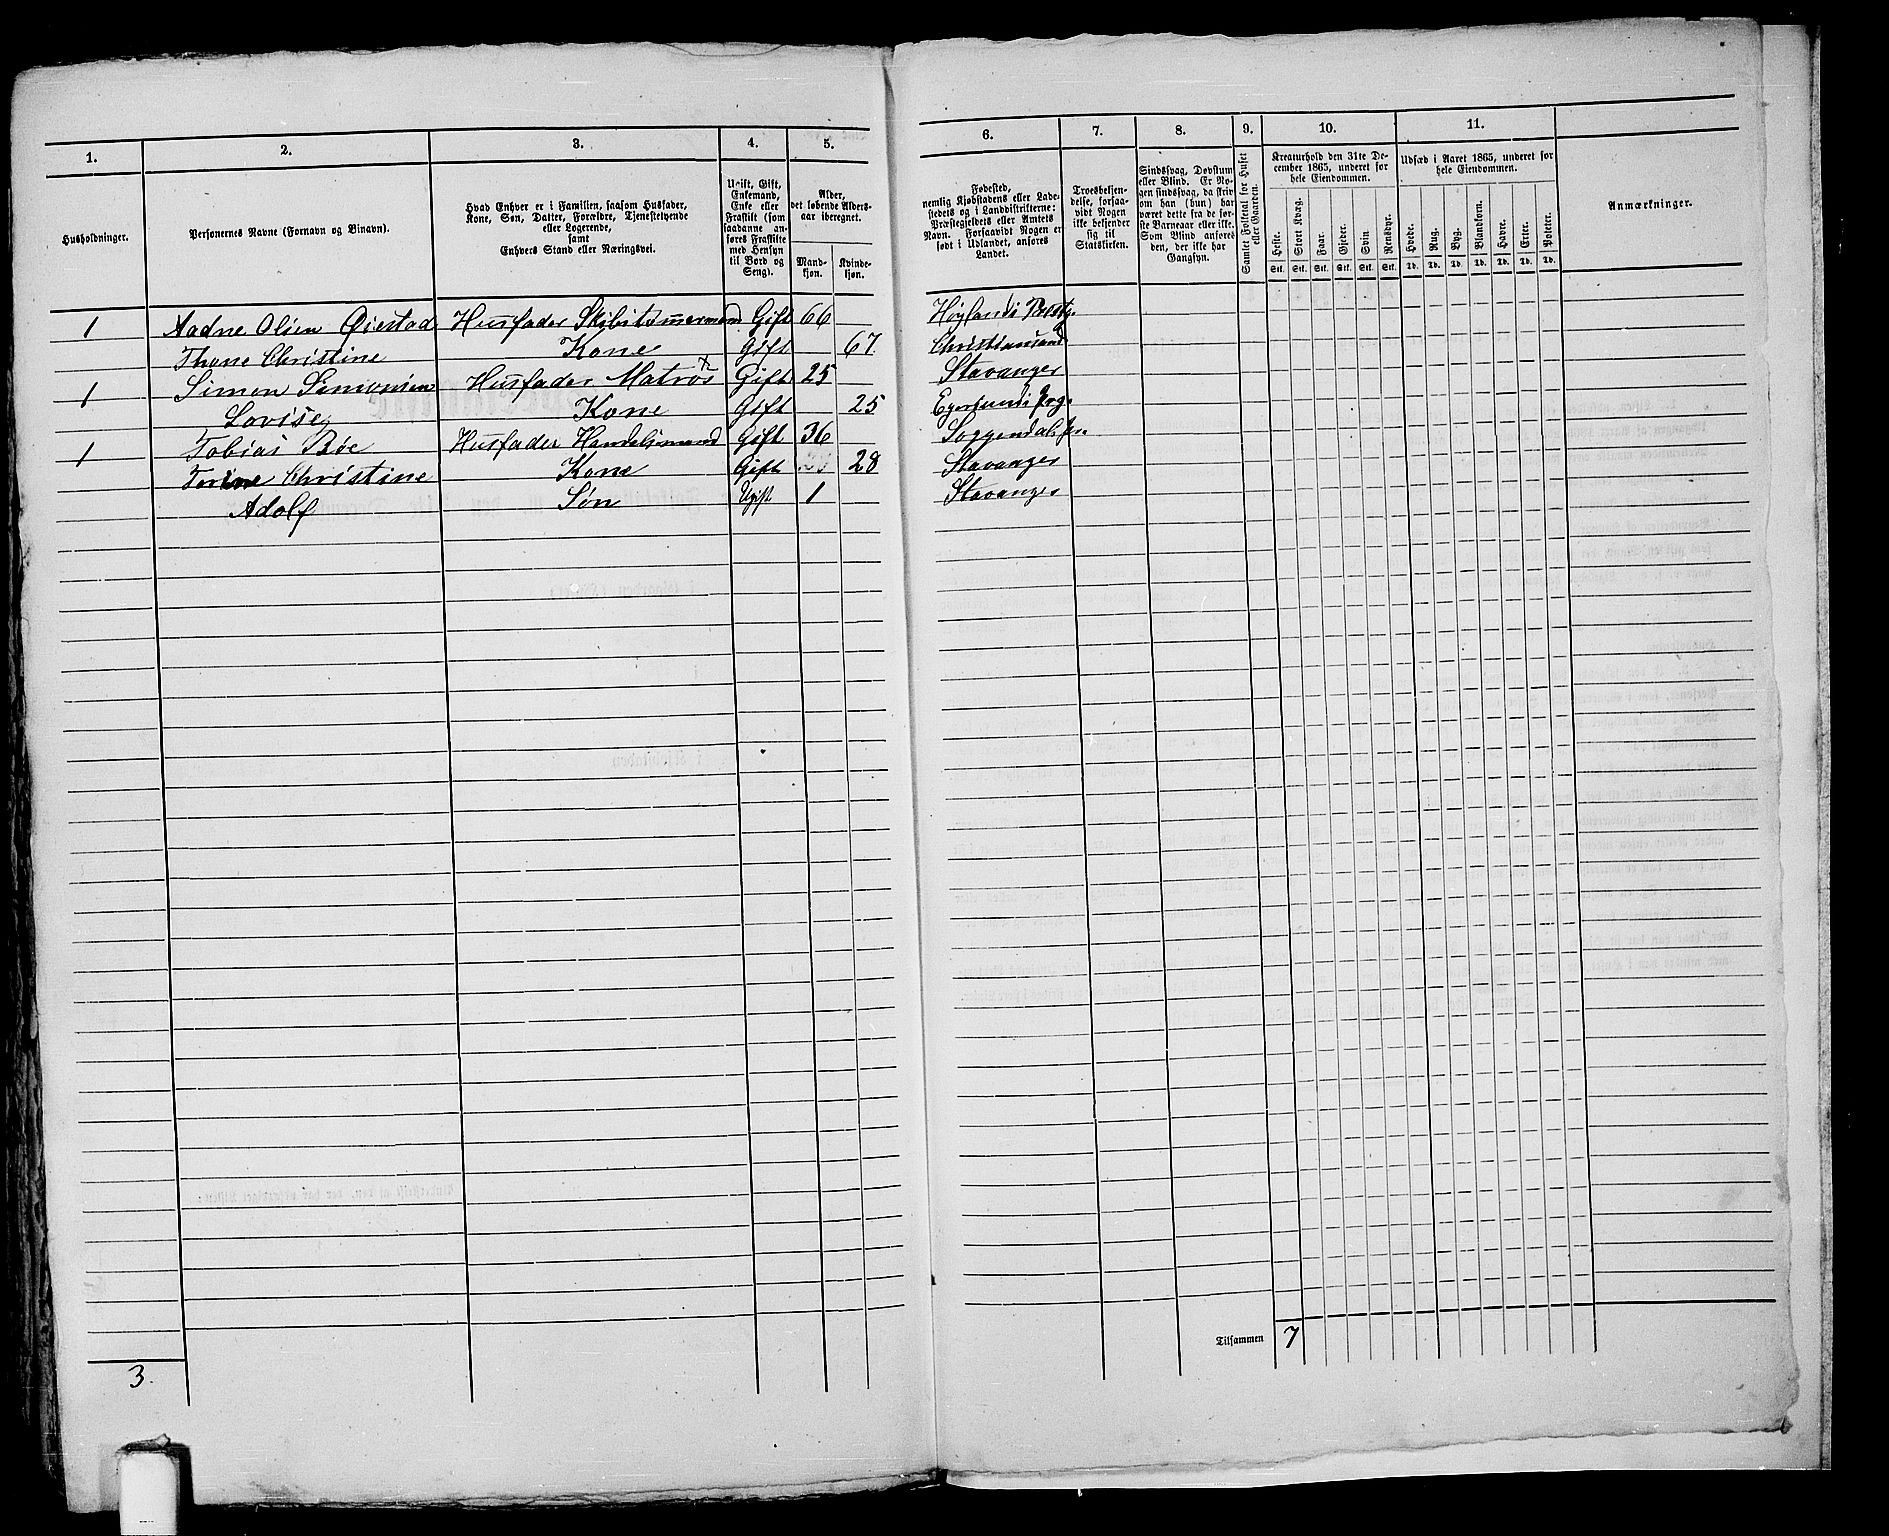 1.
2.
3.
4.
5.
6.
7.
8.
9.
10.
11.
Husholdninger.
Personernes Navne (Fornavn og Binavn).
Hvad Enhver er i Familien, saasom Husfader,
Kone, Søn, Datter, Forældre, Tjenestetyende
eller Logerende,
samt
Enhvers Stand eller Næringsvei.
Ugift, Gift,
Enkemand,
Enke eller
Fraskilt (som
saadanne an-
føres Fraskilte
med Hensyn
til Bord og
Seng).
Alder,
det løbende Alders-
aar iberegnet.
Mand-
kjøn.
Kvinde-
kjøn.
Fødested,
nemlig Kjøbstadens eller Lade-
stedets og i Landdistrikterne:
Præstegjeldets eller Amtets
Navn. Forsaavidt Nogen er
født i Udlandet, anføres
Landet.
Troesbekjen-
delse, forsaa-
vidt Nogen
ikke bekjender
sig til
Statskirken.
Sindssvag, Døvstum
eller Blind. Er No-
gen sindssvag, da skriv
om han (hun) har
været dette fra de før-
ste Barneaar eller ikke.
Som Blind anføres
den, der ikke har
Gangsyn.
Samlet Folketal for Huset
eller Gaarden.
Kreaturhold den 31te De-
cember 1865, underet for
hele Eiendommen.
Heste.
Stort Kvæg.
Faar.
Gjeder.
Svin
Rensdyr.
Stk. Stk. Stk. Stk. Stk. Stk.
Udsæd i Aaret 1865, underet for
hele Eiendommen.
Hvede.
Rug.
Byg.
Blandkorn.
Havre.
Erter.
Poteter.
Td. Td. Td. Td. Td. Td. Td.
Anmærkninger.
1 Aadne Olsen Øiestad Husfader Skibstømmermand Gift 66 Høylands Præstg.
Thone Christine Kone Gift 67 Christiansand
1 Simon Simonsen Husfader Matros Gift 25 Stavanger
Lovise Kone Gift 25 Egersunds Prg.
1 Tobias Bøe Husfader Handelsmand Gift 36 Soggendals Pr.
Torine Christine Kone Gift 28 Stavanger
Adolf Søn Ugift 1 Stavanger
Tilsammen 7
3.